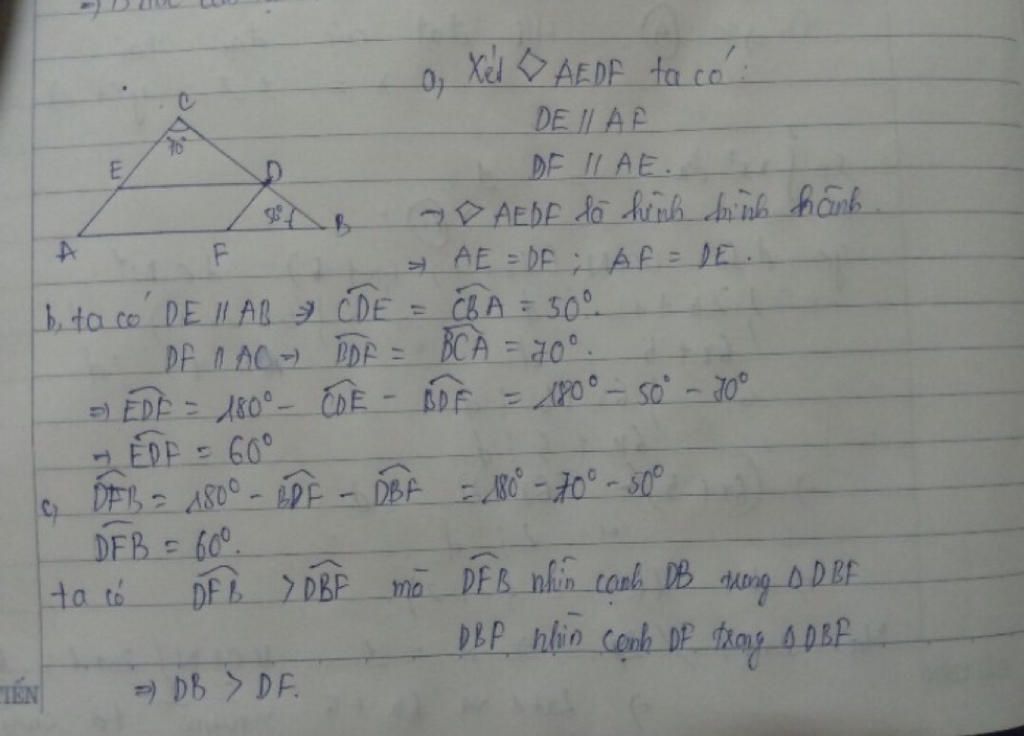 a, Xét ◇ AEDF ta có:
DE // AF
DF // AE.
→ ◇ AEDF là hình bình hành
⇒ AE = DF ; AF = DE.
C
70°
E
D
50°
A
F
B
b, ta có DE // AB ⇒ CDE = CBA = 50°.
DF // AC ⇒ BDF = BCA = 70°.
⇒ EDF = 180° - CDE - BDF = 180° - 50° - 70°
→ EDF = 60°
c, DFB = 180° - BDF - DBF = 180° - 70° - 50°
DFB = 60°.
ta có DFB > DBF mà DFB nhìn cạnh DB trong Δ DBF
DBF nhìn cạnh DF trong Δ DBF
⇒ DB > DF.
TIẾN